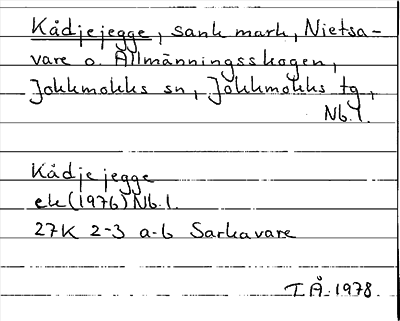 Kådjejegge, sank mark, Nietsa-
vare o. Allmänningsskogen,
Jokkmokks sn, Jokkmokks tg,
Nb.l.
Kådjejegge
ek(1976)Nb.l.
27K 2-3 a-b Sarkavare
T.Å. 1978.